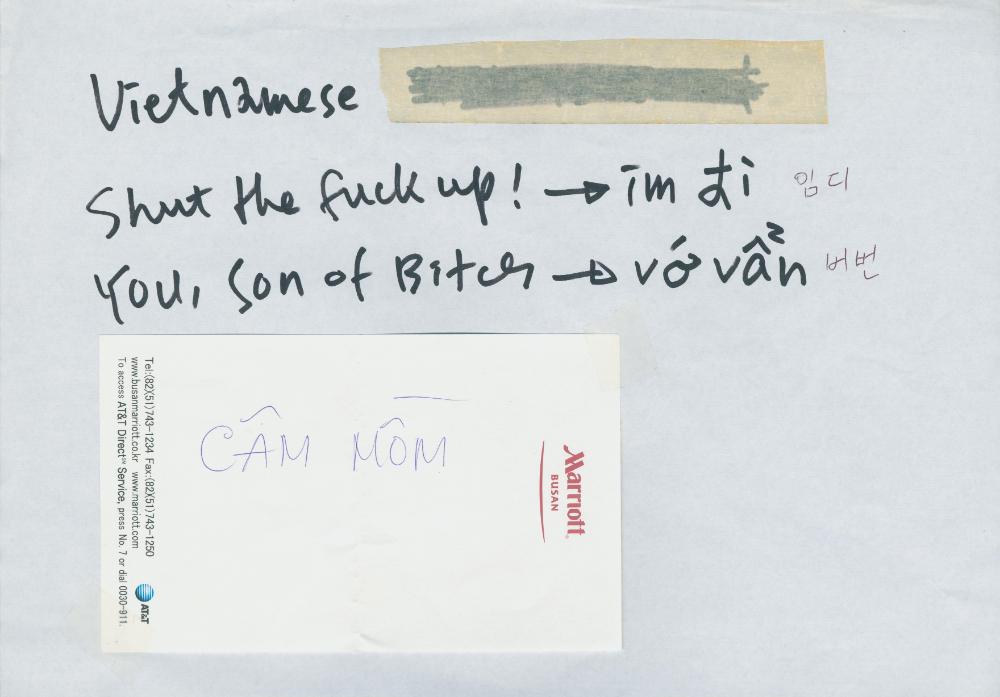 Vietnamese
Shut the fuck up! → im đi 임디
You, Son of Bitch → vớ vẩn 버번
CÂM MỒM
Marriott
BUSAN
Tel:(82)(51)743-1234 Fax:(82)(51)743-1250
www.busanmarriott.co.kr www.marriott.com
To access AT&T Direct℠ Service, press No. 7 or dial 0030-911.
AT&T